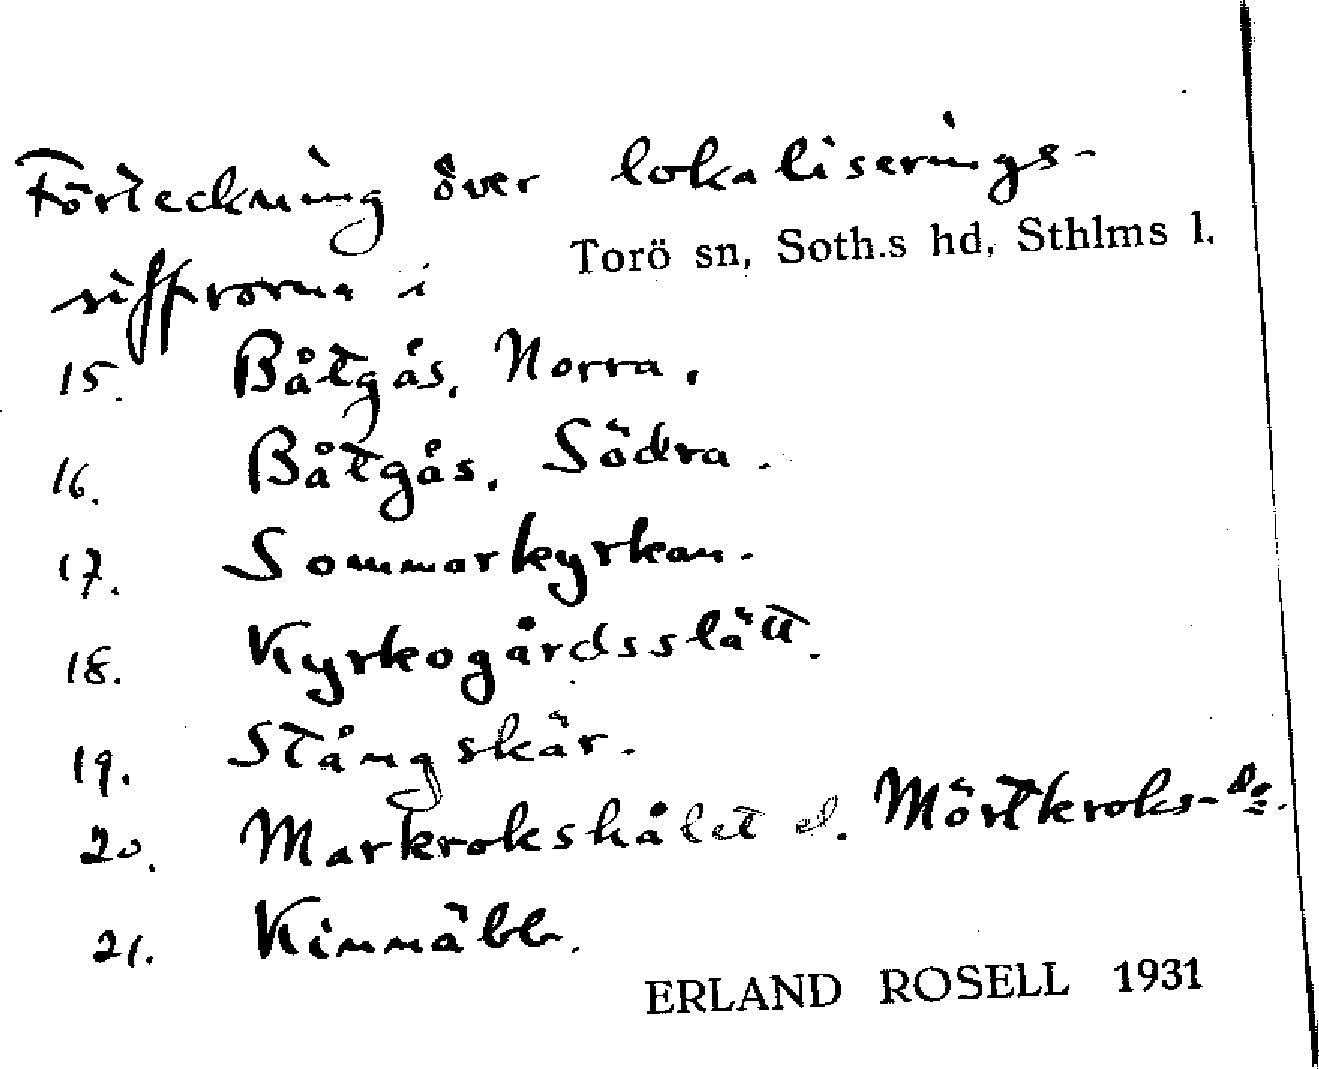 Förteckning över lokaliserings-
siffrorna i Torö sn, Soth.s hd, Sthlms l.
15. Båtgås, Norra.
16. Båtgås, Södra.
17. Sommarkyrkan.
18. Kyrkogårdsslätt.
19. Stångskär.
20. Markrokshålet el. Mörtkroks-
21.
ERLAND ROSELL 1931